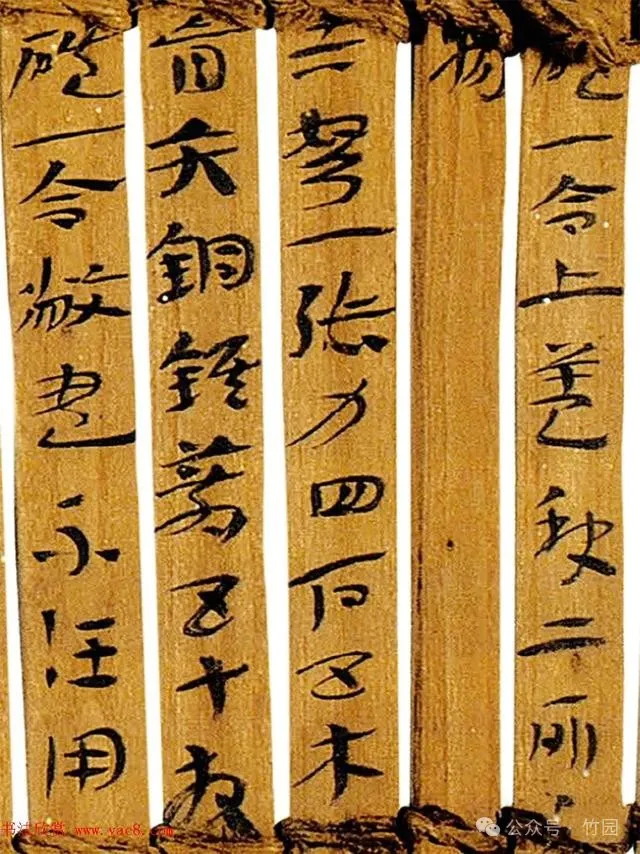 磑一合上蓋缺二所
物
弩一張力四石五木
盲矢銅鍭箭五十枚
磑一合敝盡不任用
书法欣赏 www.yac8.com
公众号 竹园